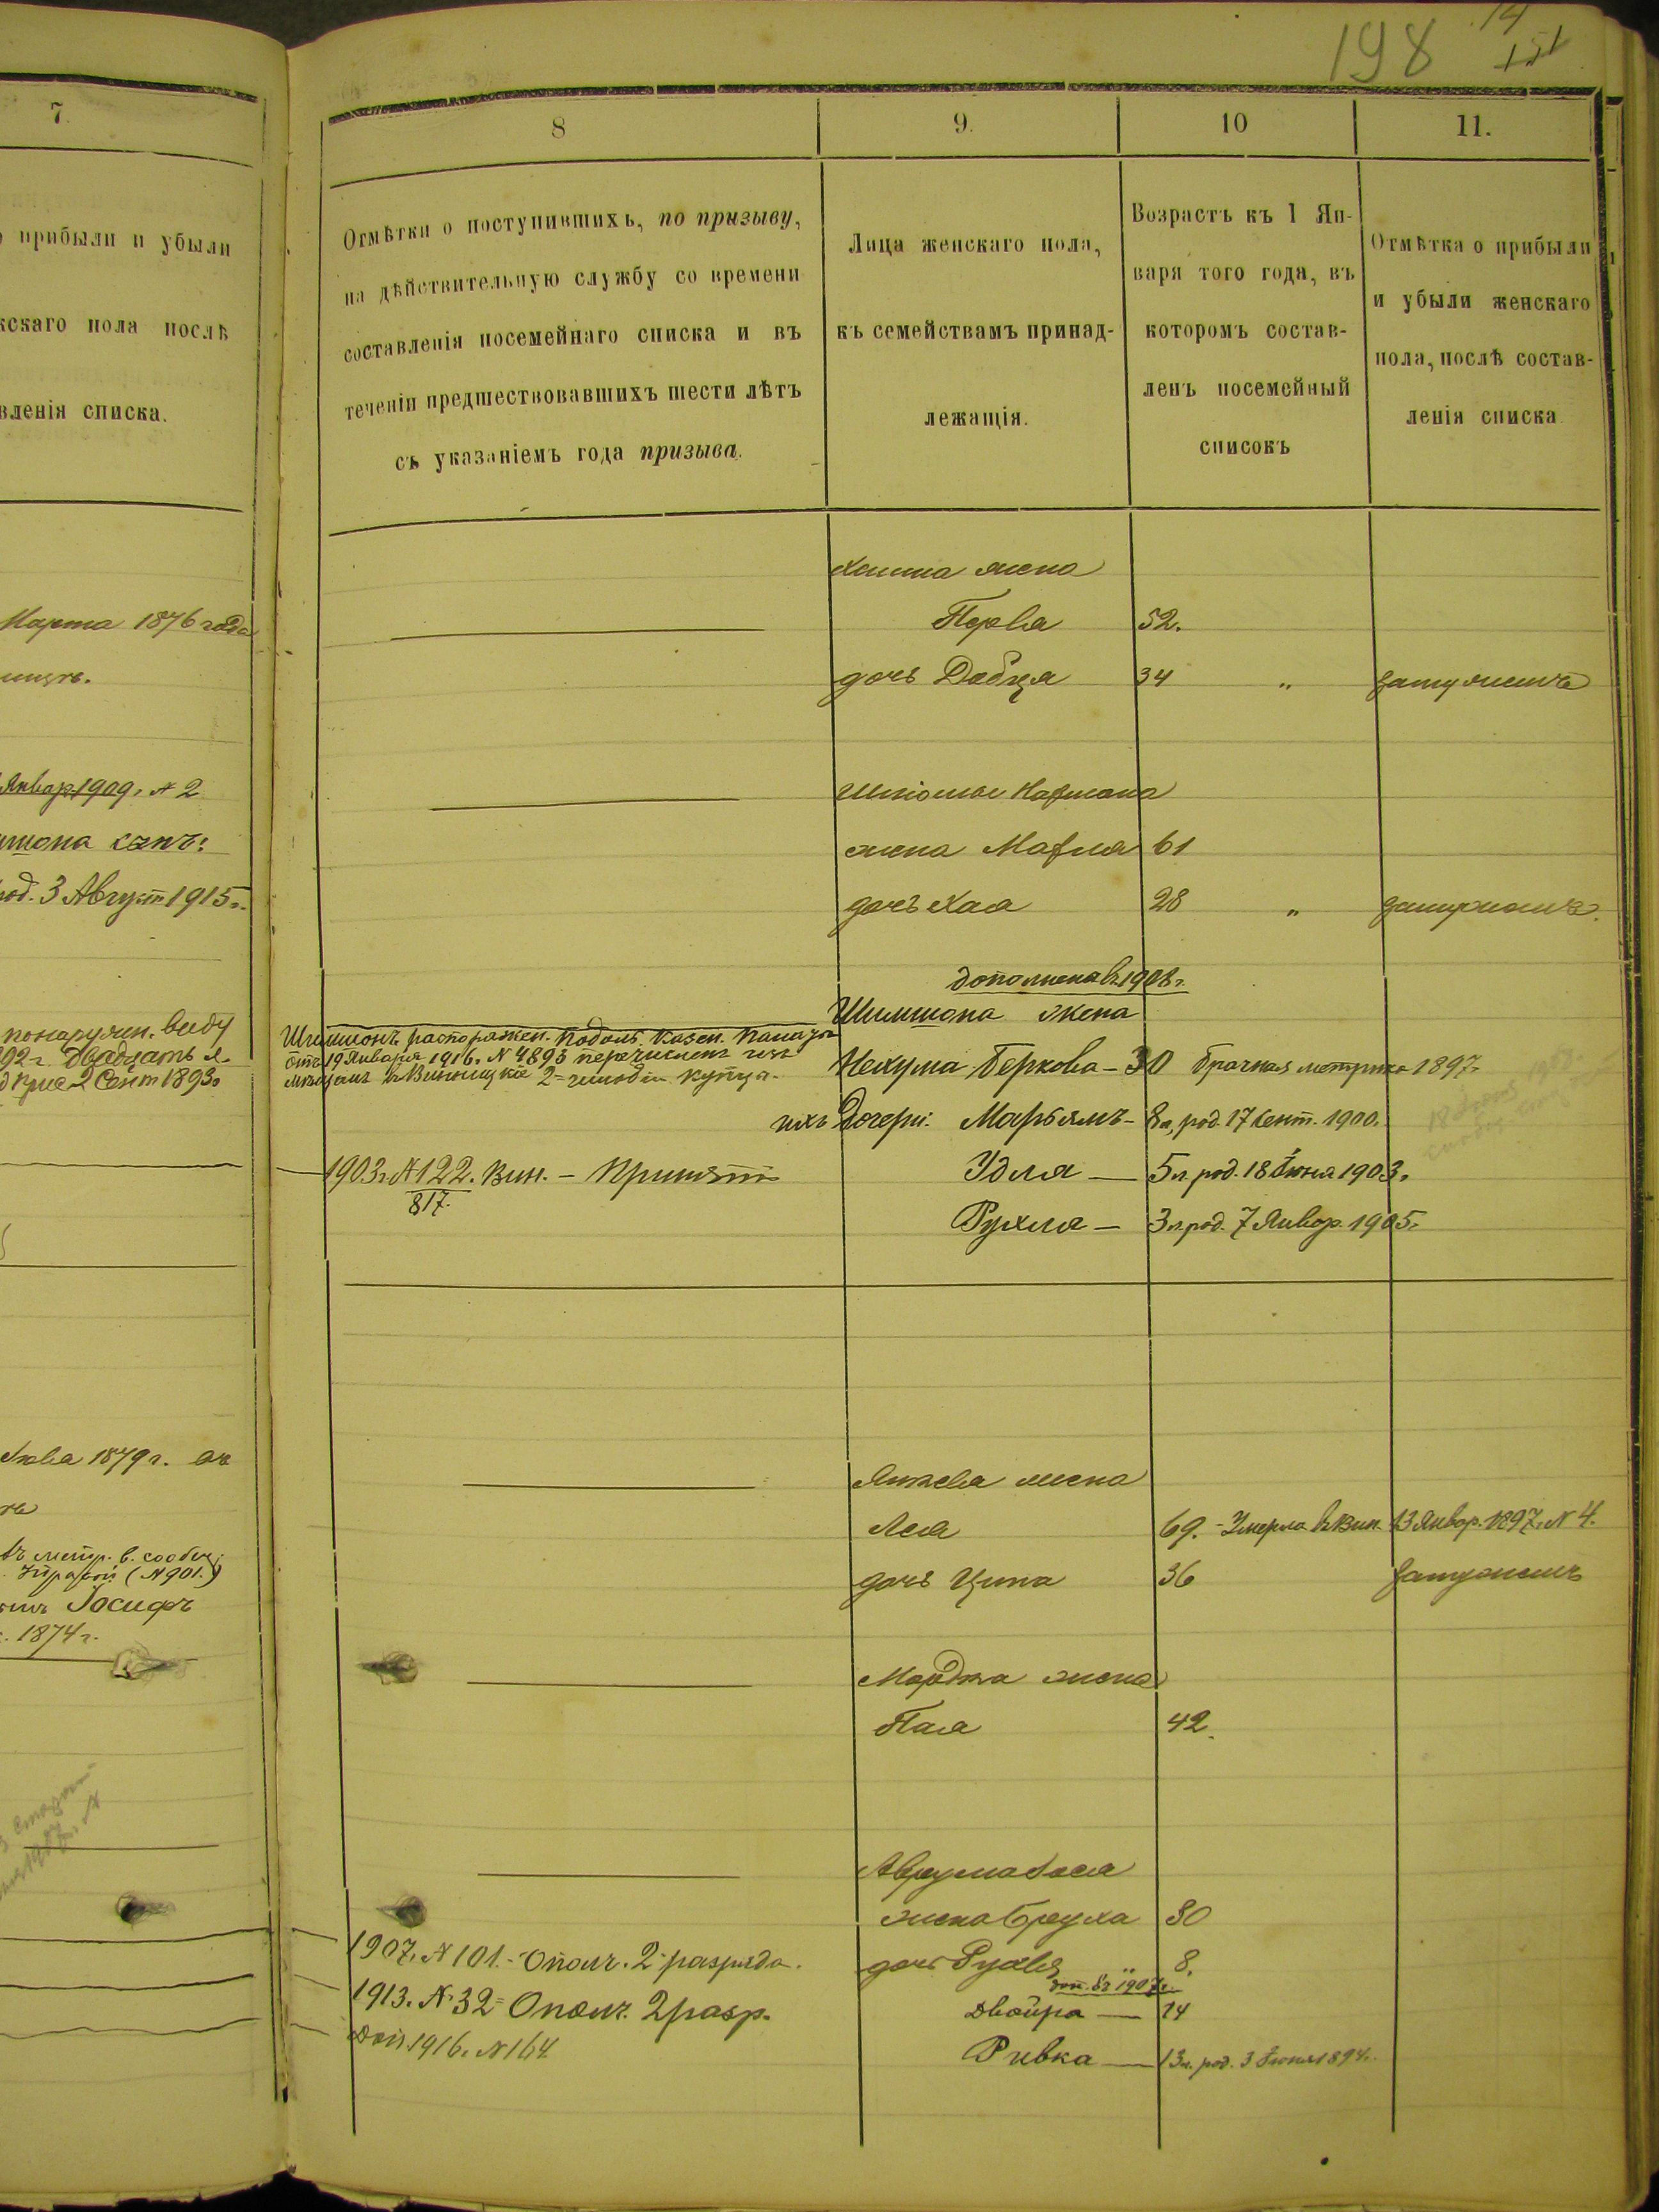 198
14
7.
прибыли и убыли
скаго пола послѣ
вленія списка.
Марта 1876 года
Январ. 1909, № 2
род. 3 Август 1915 г.
по наружн. виду
двадцать
Сент 1893.
1879 г.
(№ 901.)
Іосифъ
1874 г.
8
9.
10
11.
Отмѣтки о поступившихъ, по призыву,
на дѣйствительную службу со времени
составленія посемейнаго списка и въ
теченіи предшествовавшихъ шести лѣтъ
съ указаніемъ года призыва.
Лица женскаго пола,
къ семействамъ принад-
лежащія.
Возрастъ къ 1 Ян-
варя того года, въ
которомъ состав-
ленъ посемейный
списокъ
Отмѣтка о прибыли
и убыли женскаго
пола, послѣ состав-
ленія списка
жена
Перля 52.
дочь Добця 34 " замужемъ
жена 61
дочь Хая 28 " замужемъ.
дополнена въ 1908 г.
Шимшона жена
Шимшонъ распоряжен. Подоль. Казен. Палаты
отъ 19 Января 1916. № 4893 перечисленъ изъ
мѣщанъ въ Винницкіе 2= гильдіи купцы.
Нехума Беркова – 30 брачная метрика 1897 г.
ихъ Дочери: Марьямъ – 8 л, род. 17 Сент. 1900.
1903 г. № 122. Вин. – Принятъ
817.
Удля — 5 л. род. 18 Іюня 1903.
Рухля – 3 л. род. 7 Январ. 1905 г.
жена
Лея 69. – Умерла въ Вин. 13 Январ. 1897, № 4.
дочь Ципа 36 замужемъ
Мордка жена
Пая 42.
жена Бруха 30
1907. № 101. – Ополч. 2 разряда.
дочь 8.
доп. въ 1907 г.
1913. № 32 = Ополч. 2 разр.
Двойра — 14
1916. № 164
Ривка — 13 л. род. 3 Іюня 1894 г.